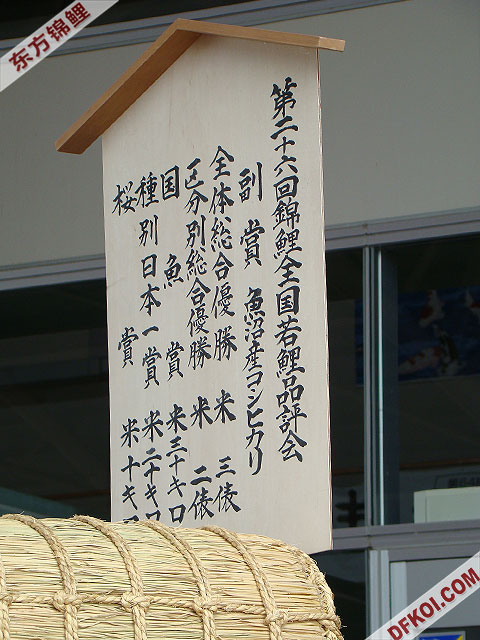 东方锦鲤
第二十六回錦鯉全国若鯉品評会
副賞 魚沼産コシヒカリ
全体総合優勝 米 三俵
区分別総合優勝 米 二俵
国魚賞 米三十キロ
種別日本一賞 米二十キロ
桜賞 米十キロ
DFKOI.COM